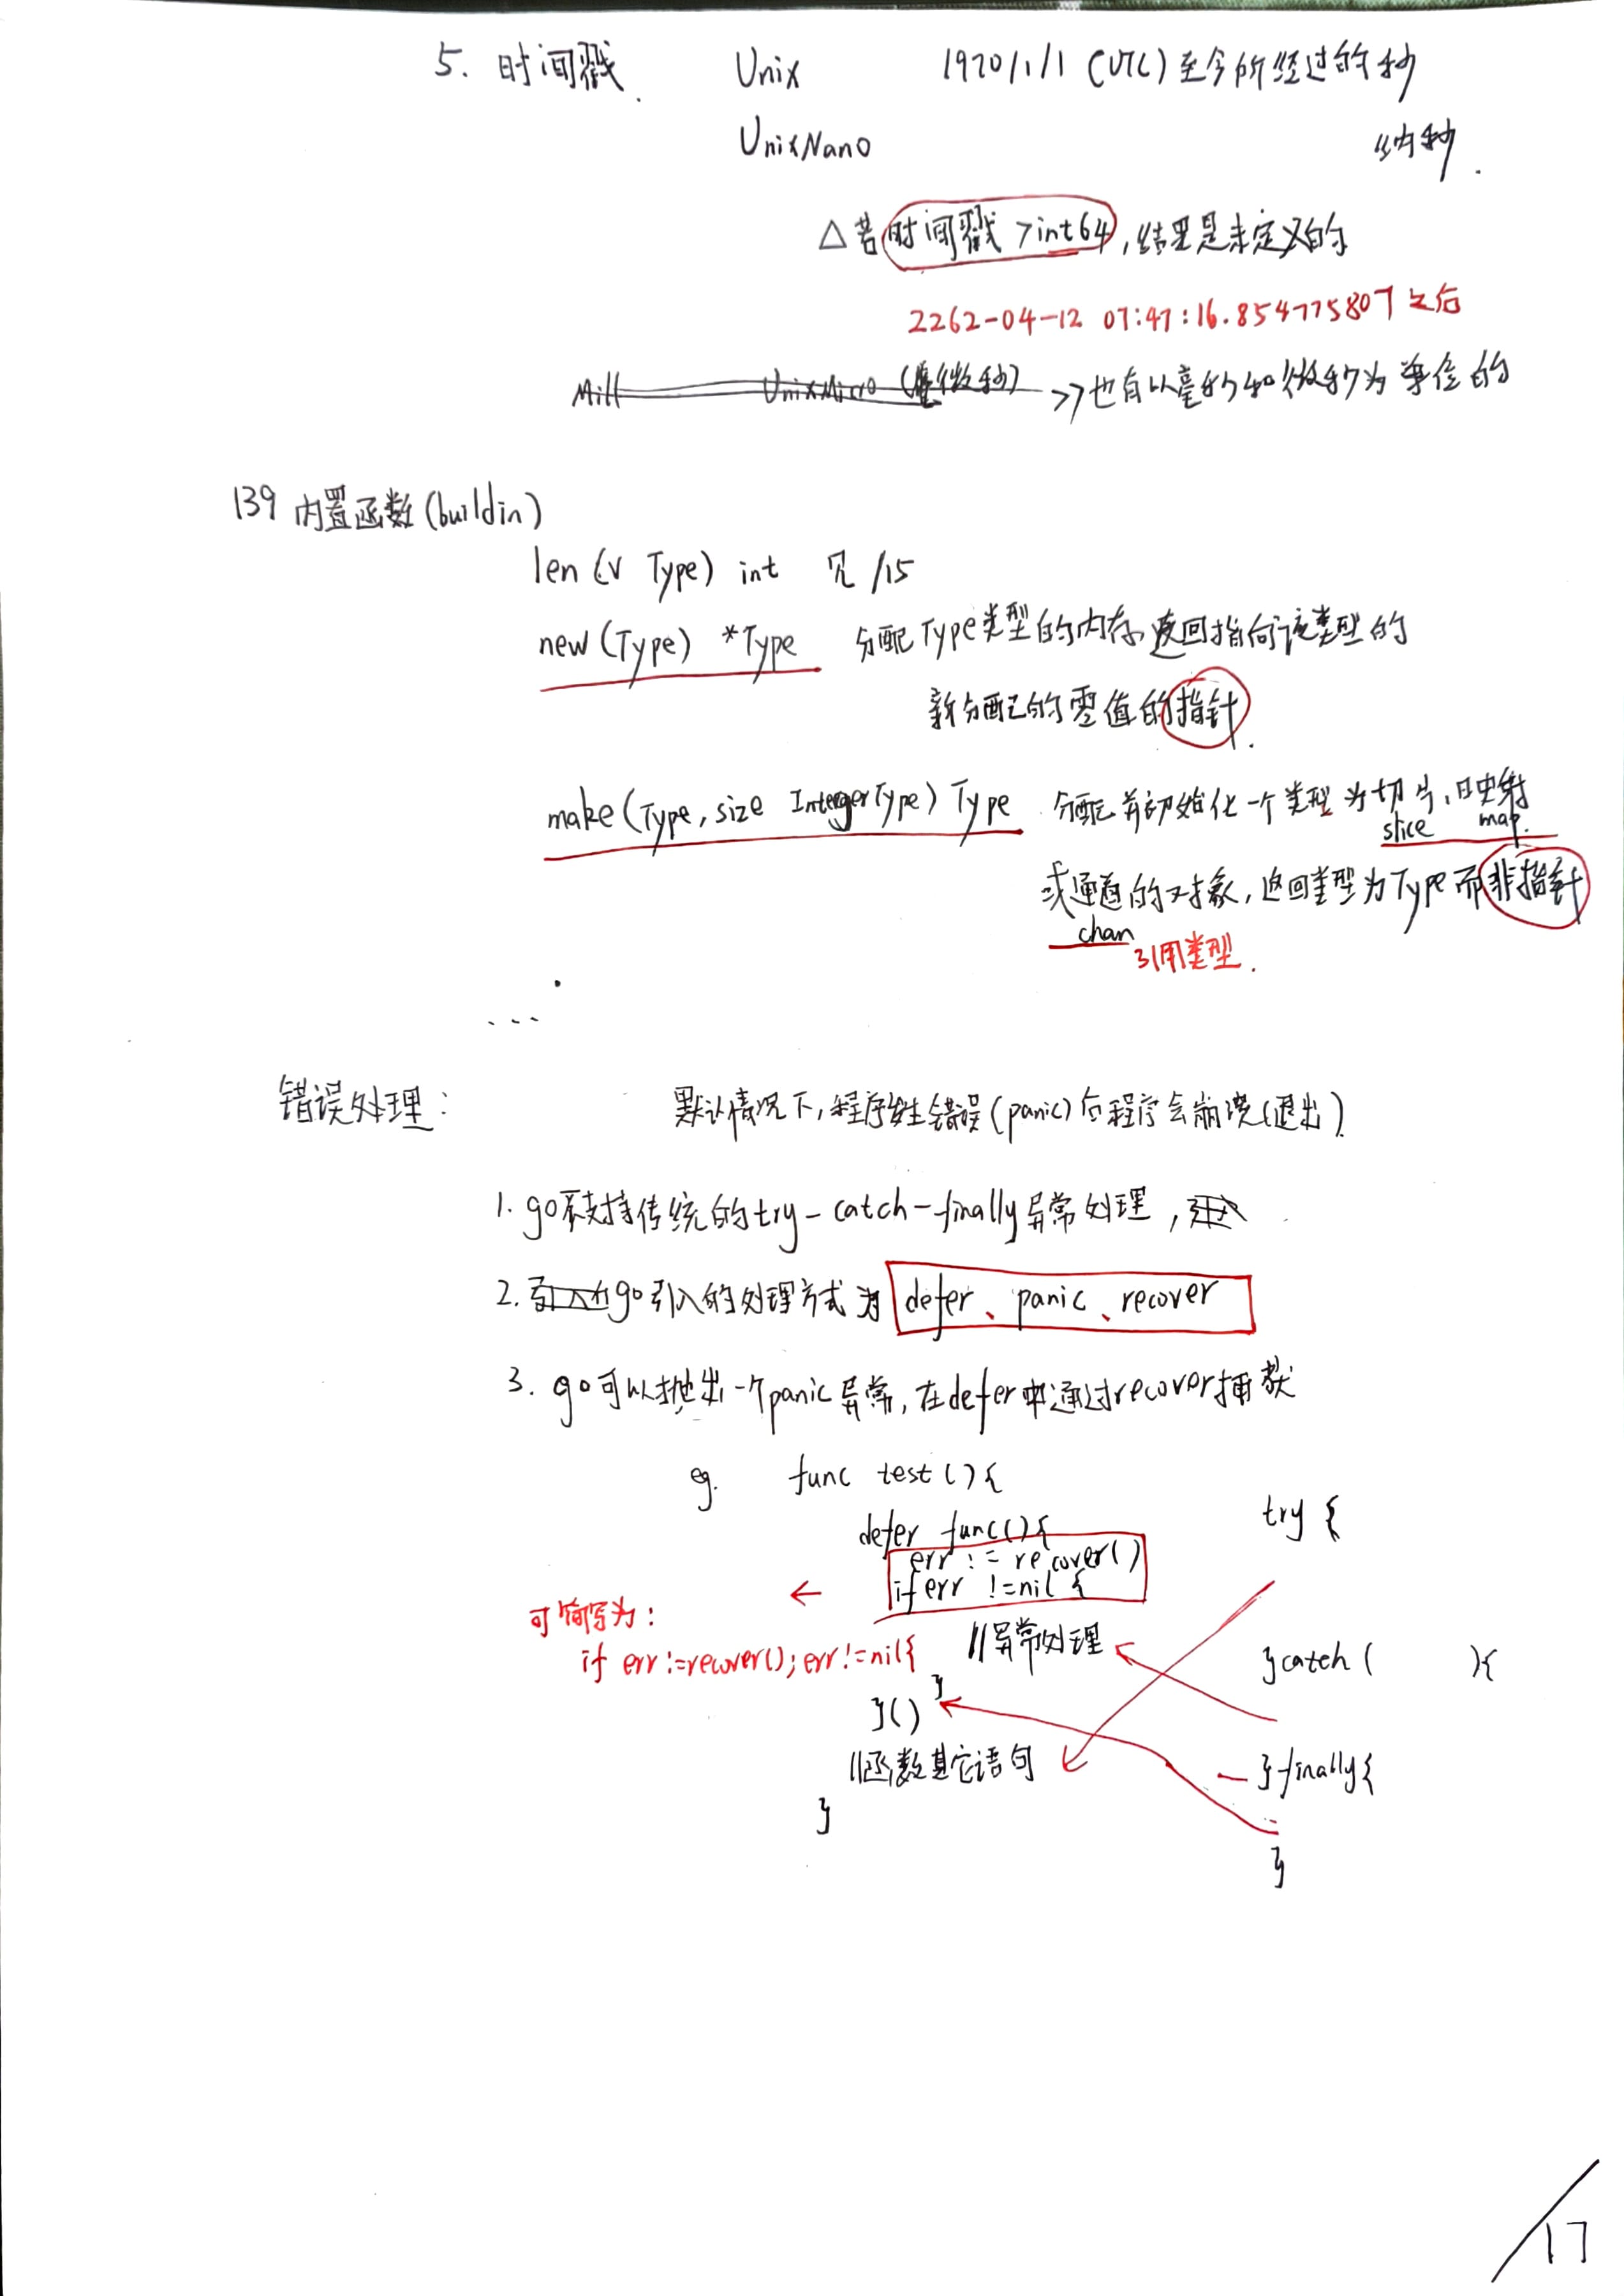 5. 时间戳. Unix 1970/1/1 (UTC) 至今所经过的秒
UnixNano 纳秒.
△若时间戳 >int64, 结果是未定义的
2262-04-12 07:47:16.854775807 之后
Mill UnixMicro (微秒) >> 也有以毫秒和微秒为单位的
139 内置函数(buildin)
len (v Type) int 见 /15
new (Type) *Type 分配Type类型的内存, 返回指向该类型的
新分配的零值的指针.
make (Type, size IntegerType) Type 分配并初始化一个类型为切片, 映射
slice map.
或通道的对象, 返回类型为Type而非指针
chan 引用类型.
...
错误处理: 默认情况下, 程序发生错误(panic)后程序会崩溃(退出).
1. go不支持传统的try-catch-finally异常处理,
2. go引入的处理方式为 defer、panic、recover
3. go可以抛出一个panic异常, 在defer中通过recover捕获
eg. func test () {
try {
defer func() {
err := recover()
← if err !=nil {
可简写为:
//异常处理
if err:=recover(); err!=nil{
}catch ( ){
}
}()
//函数其它语句
}finally{
}
}
/17